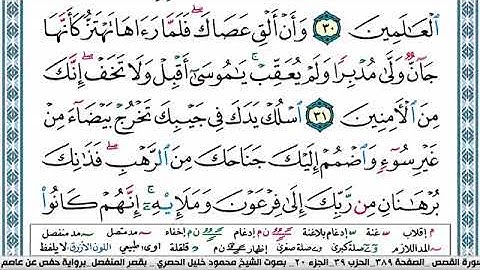 ٱلۡعَٰلَمِينَ ٣٠ وَأَنۡ أَلۡقِ عَصَاكَۚ فَلَمَّا رَءَاهَا تَهۡتَزُّ كَأَنَّهَا
جَآنّٞ وَلَّىٰ مُدۡبِرٗا وَلَمۡ يُعَقِّبۡۚ يَٰمُوسَىٰٓ أَقۡبِلۡ وَلَا تَخَفۡۖ إِنَّكَ
مِنَ ٱلۡأٓمِنِينَ ٣١ ٱسۡلُكۡ يَدَكَ فِي جَيۡبِكَ تَخۡرُجۡ بَيۡضَآءَ مِنۡ
غَيۡرِ سُوٓءٖ وَٱضۡمُمۡ إِلَيۡكَ جَنَاحَكَ مِنَ ٱلرَّهۡبِۖ فَذَٰنِكَ
بُرۡهَٰنَانِ مِن رَّبِّكَ إِلَىٰ فِرۡعَوۡنَ وَمَلَإِيْهِۦٓۚ إِنَّهُمۡ كَانُواْ
م إقلاب غنة إدغام بلاغنة إدغام إخفاء مد متصل مد منفصل
المد اللازم صلة كبرى وصلة صغرى إظهار قلقلة طبيعي اللون الأزرق لا يلفظ
سورة القصص الصفحة ٣٨٩ .. الحزب ٣٩ .. الجزء ٢٠ .. بصوت الشيخ محمود خليل الحصري .. بقصر المنفصل .. برواية حفص عن عاصم